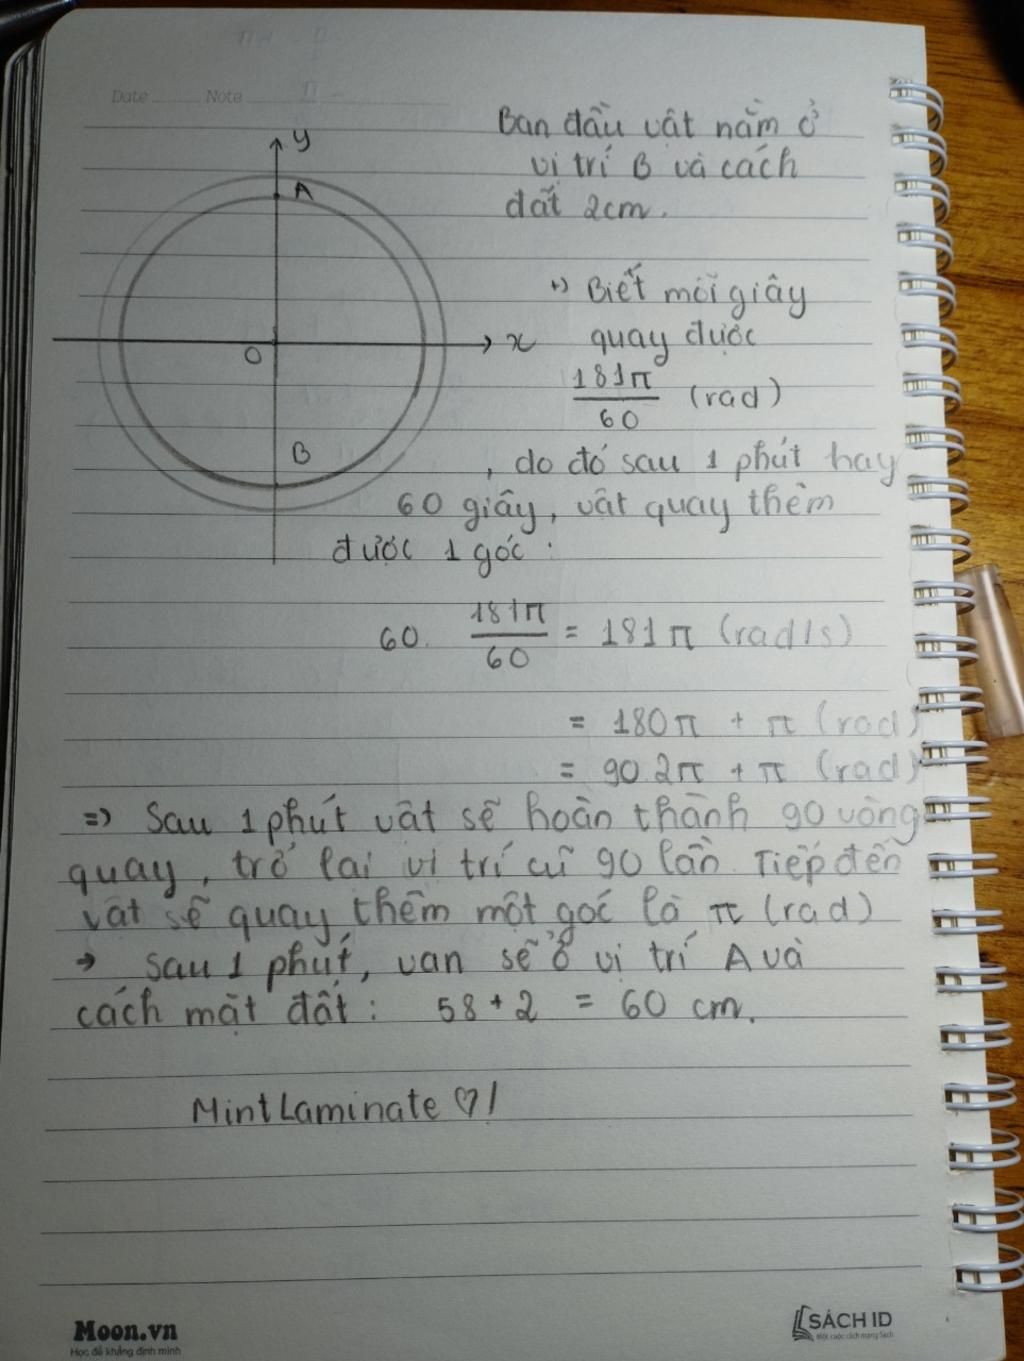 Date Note
Ban đầu vật nằm ở
vị trí B và cách
đất 2cm.
y
A
+) Biết mỗi giây
O
x
quay được
181π
60
(rad)
B
, do đó sau 1 phút hay
60 giây, vật quay thêm
được 1 góc :
60. 181π/60 = 181π (rad/s)
= 180π + π (rad)
= 90.2π + π (rad)
=> Sau 1 phút vật sẽ hoàn thành 90 vòng
quay, trở lại vị trí cũ 90 lần. Tiếp đến
vật sẽ quay thêm một góc là π (rad)
→ Sau 1 phút, van sẽ ở vị trí A và
cách mặt đất : 58 + 2 = 60 cm.
MintLaminate ♡!
Moon.vn
Học để khẳng định mình
SÁCH ID
Một cuộc cách mạng Sách